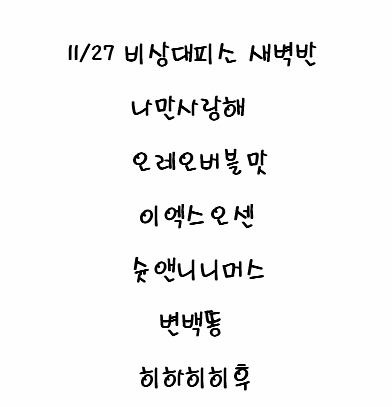 11/27 비상대피소 새벽반
나만사랑해
오레오버블맛
이엑스오센
슛앤니니머스
변백똥
히하히히후